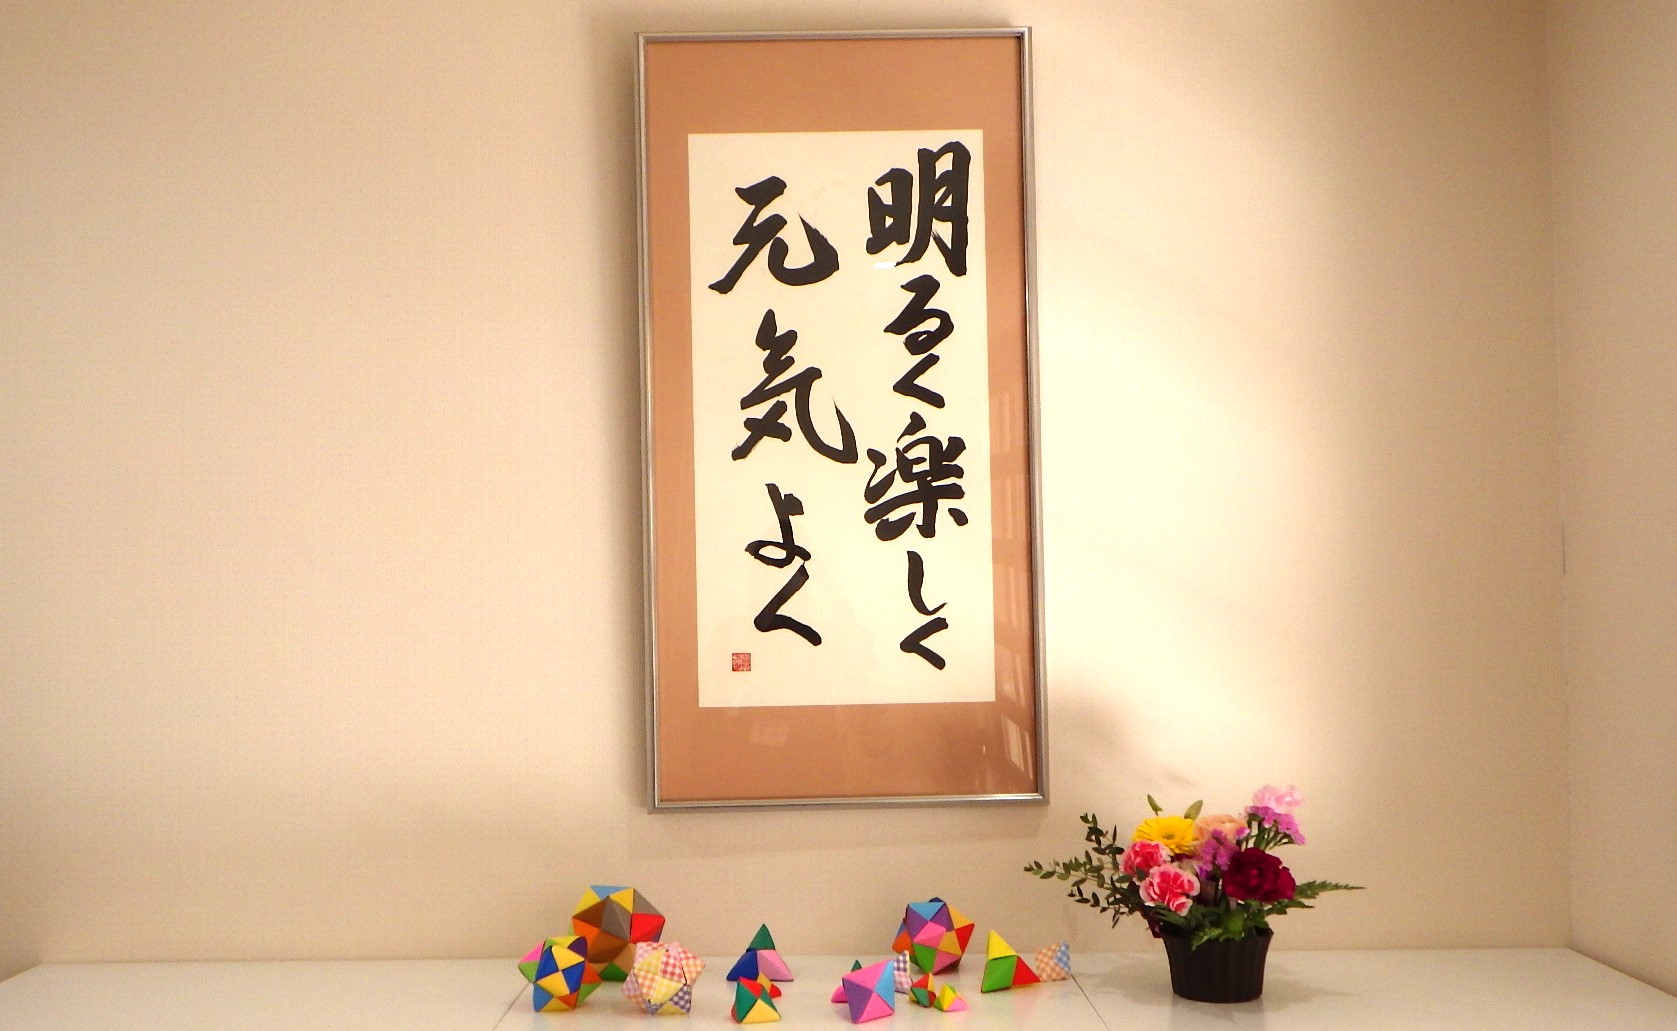 明るく楽しく
元気よく